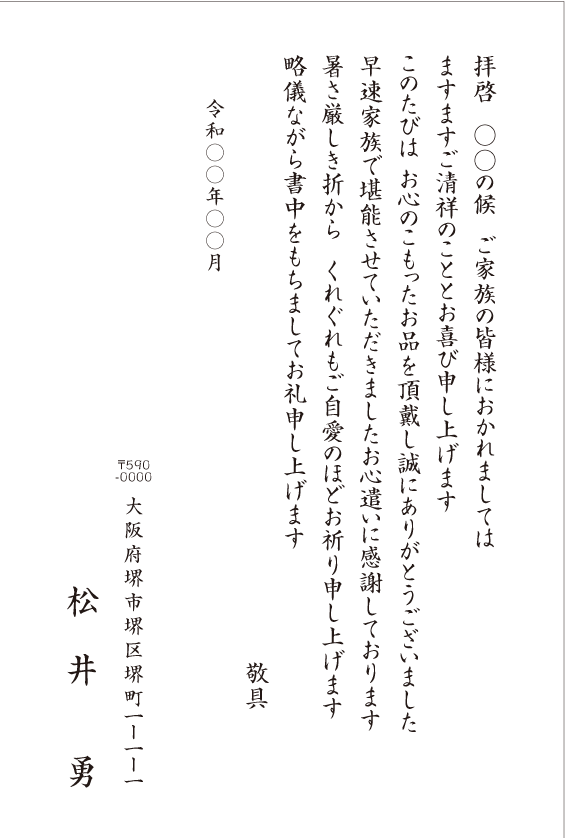 拝啓　〇〇の候　ご家族の皆様におかれましては
ますますご清祥のこととお喜び申し上げます
このたびは お心のこもったお品を頂戴し誠にありがとうございました
早速家族で堪能させていただきましたお心遣いに感謝しております
暑さ厳しき折から　くれぐれもご自愛のほどお祈り申し上げます
略儀ながら書中をもちましてお礼申し上げます
敬具
令和〇〇年〇〇月
〒590
-0000
大阪府堺市堺区堺町一ー一ー一
松井　勇